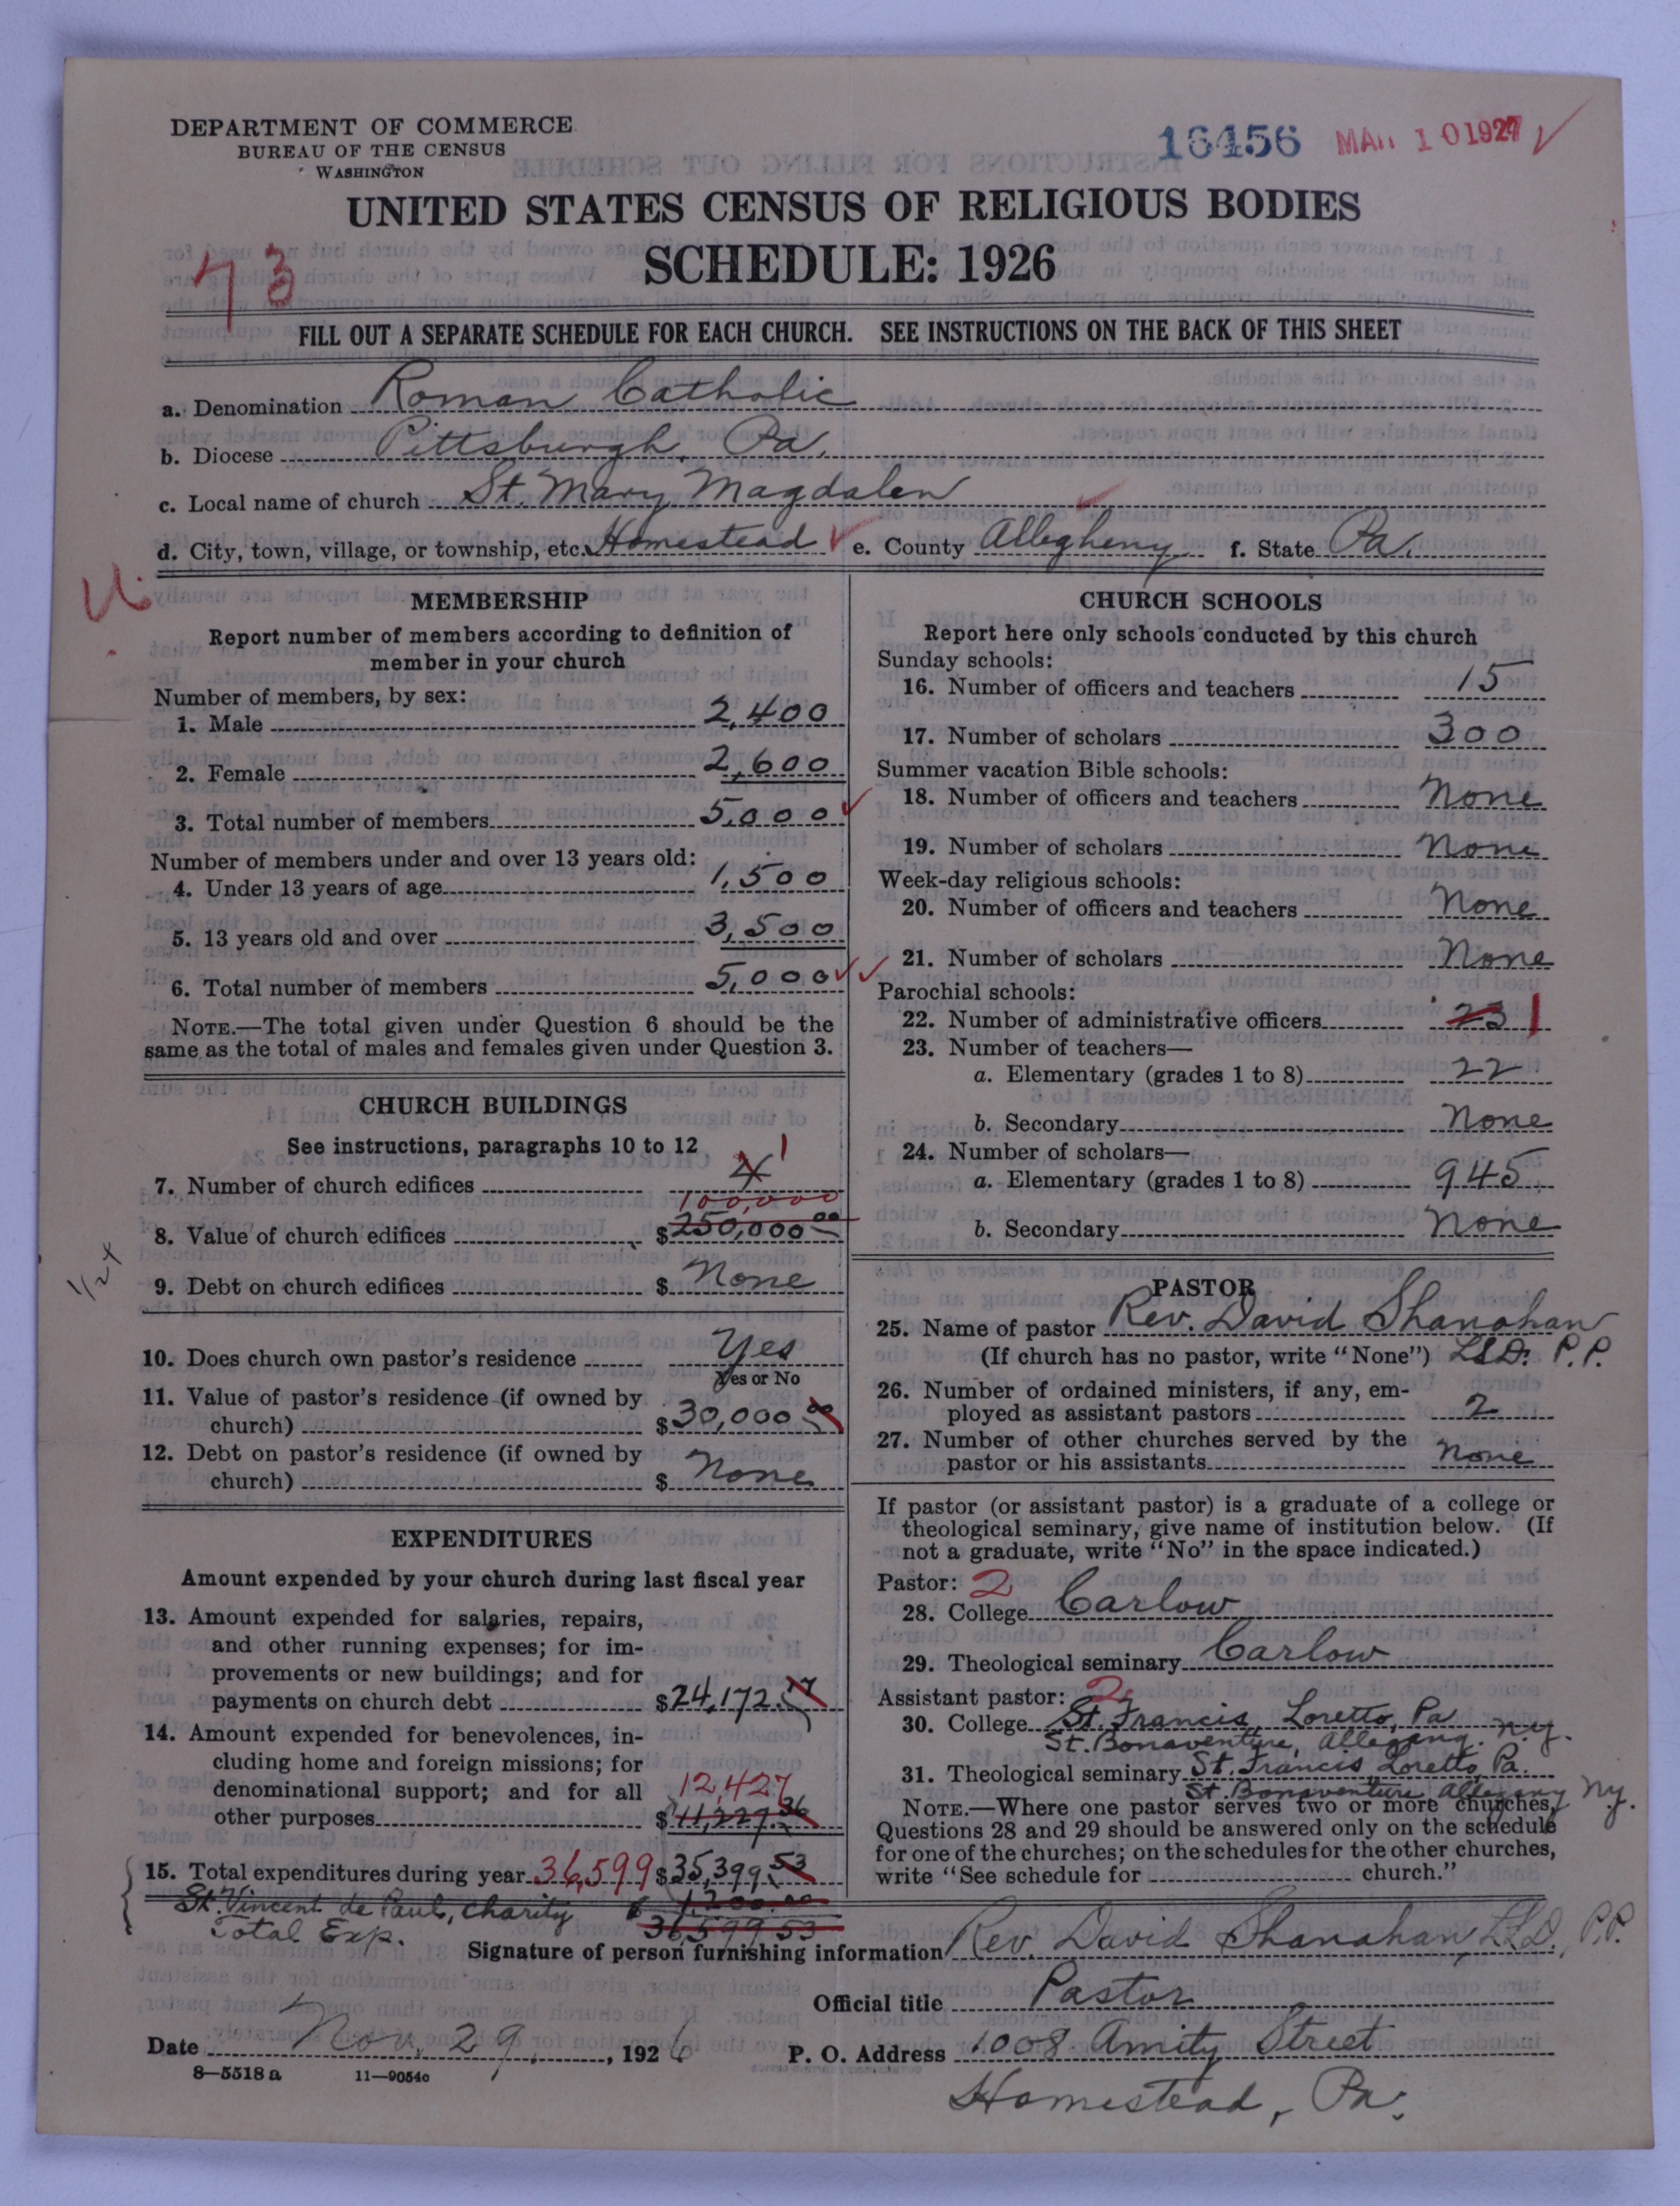 DEPARTMENT OF COMMERCE
BUREAU OF THE CENSUS
WASHINGTON
16456 MAR 10 1927
UNITED STATES CENSUS OF RELIGIOUS BODIES
SCHEDULE: 1926
73
FILL OUT A SEPARATE SCHEDULE FOR EACH CHURCH. SEE INSTRUCTIONS ON THE BACK OF THIS SHEET
a. Denomination Roman Catholic
b. Diocese Pittsburgh, Pa.
c. Local name of church St. Mary Magdalen
d. City, town, village, or township, etc. Homestead e. County Allegheny f. State Pa.
MEMBERSHIP
Report number of members according to definition of
member in your church
Number of members, by sex:
1. Male 2,400
2. Female 2,600
3. Total number of members 5,000
Number of members under and over 13 years old:
4. Under 13 years of age 1,500
5. 13 years old and over 3,500
6. Total number of members 5,000
NOTE.—The total given under Question 6 should be the
same as the total of males and females given under Question 3.
CHURCH BUILDINGS
See instructions, paragraphs 10 to 12
7. Number of church edifices 4 1
100,000
8. Value of church edifices $250,000.00
9. Debt on church edifices $ None
10. Does church own pastor's residence Yes
Yes or No
11. Value of pastor's residence (if owned by
church) $30,000.00
12. Debt on pastor's residence (if owned by
church) $ None
EXPENDITURES
Amount expended by your church during last fiscal year
13. Amount expended for salaries, repairs,
and other running expenses; for im-
provements or new buildings; and for
payments on church debt $24,172.17
14. Amount expended for benevolences, in-
cluding home and foreign missions; for
denominational support; and for all 12,427
other purposes $11,227.36
15. Total expenditures during year 36,599 $35,399.53
St. Vincent de Paul, charity $ 1,200.00
Total Exp. 36,599.53
CHURCH SCHOOLS
Report here only schools conducted by this church
Sunday schools:
16. Number of officers and teachers 15
17. Number of scholars 300
Summer vacation Bible schools:
18. Number of officers and teachers None
19. Number of scholars None
Week-day religious schools:
20. Number of officers and teachers None
21. Number of scholars None
Parochial schools:
22. Number of administrative officers 23 1
23. Number of teachers—
a. Elementary (grades 1 to 8) 22
b. Secondary None
24. Number of scholars—
a. Elementary (grades 1 to 8) 945
b. Secondary None
PASTOR
25. Name of pastor Rev. David Shanahan
(If church has no pastor, write "None") LL.D. P.P.
26. Number of ordained ministers, if any, em-
ployed as assistant pastors 2
27. Number of other churches served by the
pastor or his assistants none
If pastor (or assistant pastor) is a graduate of a college or
theological seminary, give name of institution below. (If
not a graduate, write "No" in the space indicated.)
Pastor: 2
28. College Carlow
29. Theological seminary Carlow
Assistant pastor: 2
30. College St. Francis, Loretto, Pa
St. Bonaventure, Allegany. N.Y.
31. Theological seminary St. Francis Loretto, Pa.
St. Bonaventure Allegany N.Y.
NOTE.—Where one pastor serves two or more churches,
Questions 28 and 29 should be answered only on the schedule
for one of the churches; on the schedules for the other churches,
write "See schedule for church."
Signature of person furnishing information Rev. David Shanahan, LL.D., P.P.
Official title Pastor
Date Nov. 29, 1926 P. O. Address 1008 Amity Street
8—5518a 11—9054c
Homestead, Pa.